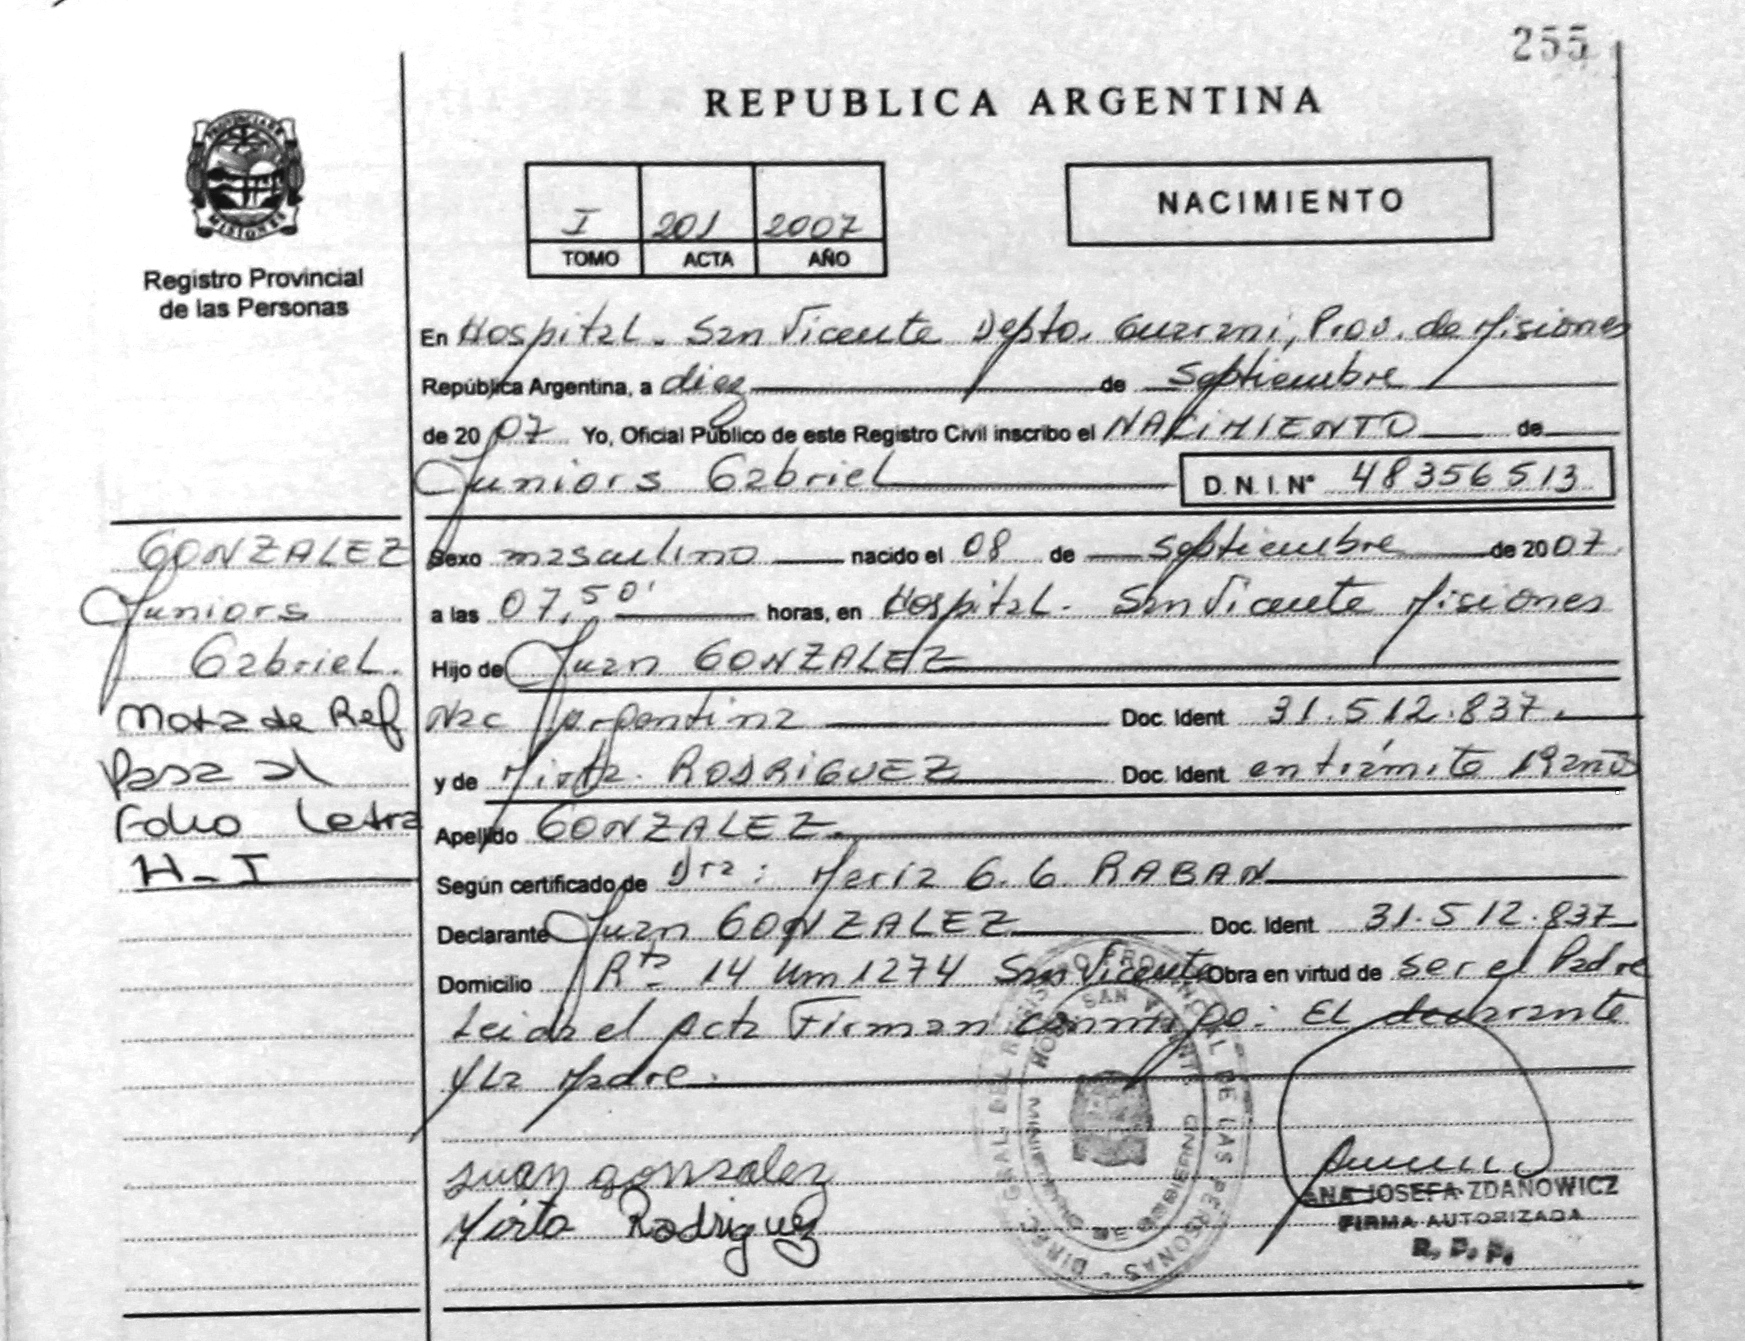 255
REPUBLICA ARGENTINA
PROVINCIA DE
MISIONES
Registro Provincial
de las Personas
I 201 2007
TOMO ACTA AÑO
NACIMIENTO
En Hospital. San Vicente Depto. Guarani, Prov. de Misiones
República Argentina, a diez de Septiembre
de 2007 Yo, Oficial Público de este Registro Civil inscribo el NACIMIENTO de
Juniors Gabriel D.N.I.N° 48356513
GONZALEZ
Juniors
Gabriel.
Nota de Ref
Pasa al
Folio Letra
H-I
Sexo masculino nacido el 08 de septiembre de 2007
a las 07,50' horas, en Hospital. San Vicente Misiones
Hijo de Juan GONZALEZ
Nac Argentina Doc. Ident. 31.512.837.
y de Mirta. RODRIGUEZ Doc. Ident. en trámite 19 años
Apellido GONZALEZ.
Según certificado de Dra: Meriz G. G. RABAN
Declarante Juan GONZALEZ Doc. Ident. 31.512.837
Domicilio Rta 14 Km 1274 San Vicente Obra en virtud de ser el Padre
Leida el Acta Firman conmigo: EL declarante
y La Madre.
juan gonzalez
Mirta Rodriguez
DIREC. GRAL. DEL REGISTRO PROVINCIAL DE LAS PERSONAS
HOSP. SAN VICENTE
MINISTERIO DE GOBIERNO
ANA JOSEFA ZDANOWICZ
FIRMA AUTORIZADA
R. P. P.